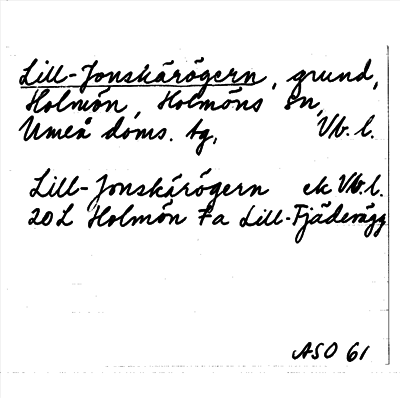 Lill-Jonskärögern, grund,
Holmön, Holmöns sn,
Umeå doms. tg, Vb. l.
Lill-Jonskärögern ek Vb. l.
20 L Holmön Fa Lill-Fjäderägg
ASO 61